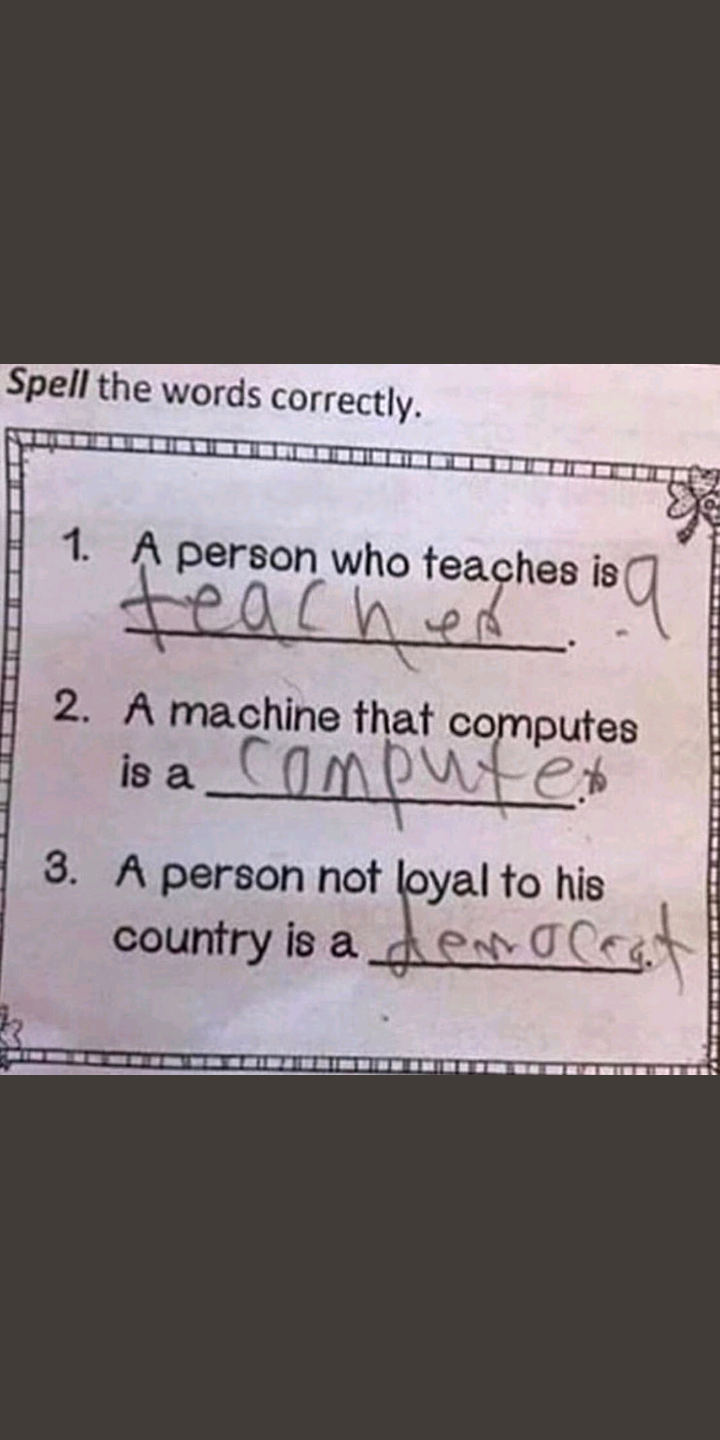 Spell the words correctly.
1. A person who teaches is a
teacher.
2. A machine that computes
is a computer.
3. A person not loyal to his
country is a democrat.